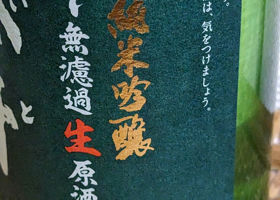 は、気をつけましょう。
純米吟醸
無濾過生原酒
と